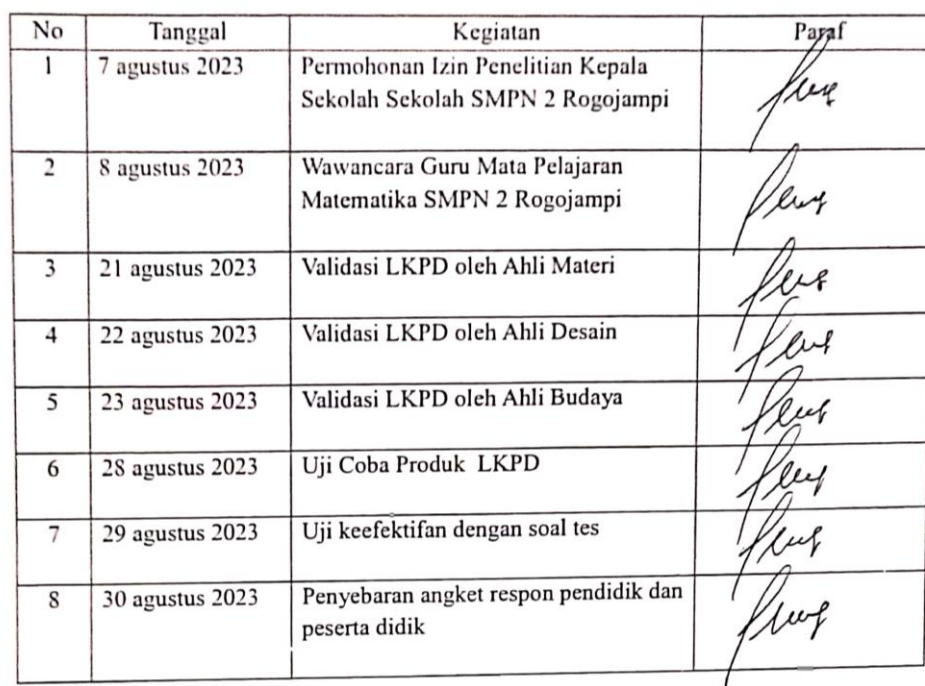 No Tanggal Kegiatan Paraf
1 7 agustus 2023 Permohonan Izin Penelitian Kepala
Sekolah Sekolah SMPN 2 Rogojampi
2 8 agustus 2023 Wawancara Guru Mata Pelajaran
Matematika SMPN 2 Rogojampi
3 21 agustus 2023 Validasi LKPD oleh Ahli Materi
4 22 agustus 2023 Validasi LKPD oleh Ahli Desain
5 23 agustus 2023 Validasi LKPD oleh Ahli Budaya
6 28 agustus 2023 Uji Coba Produk LKPD
7 29 agustus 2023 Uji keefektifan dengan soal tes
8 30 agustus 2023 Penyebaran angket respon pendidik dan
peserta didik